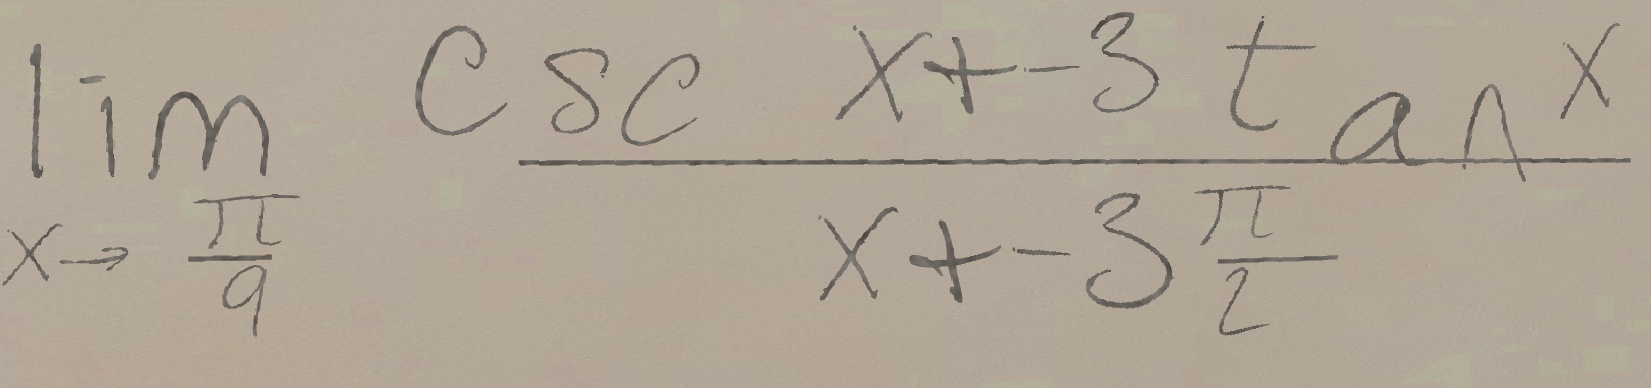 \lim_{x \to \frac{\pi}{9}} \frac{\csc x + -3 \tan x}{x + -3 \frac{\pi}{2}}